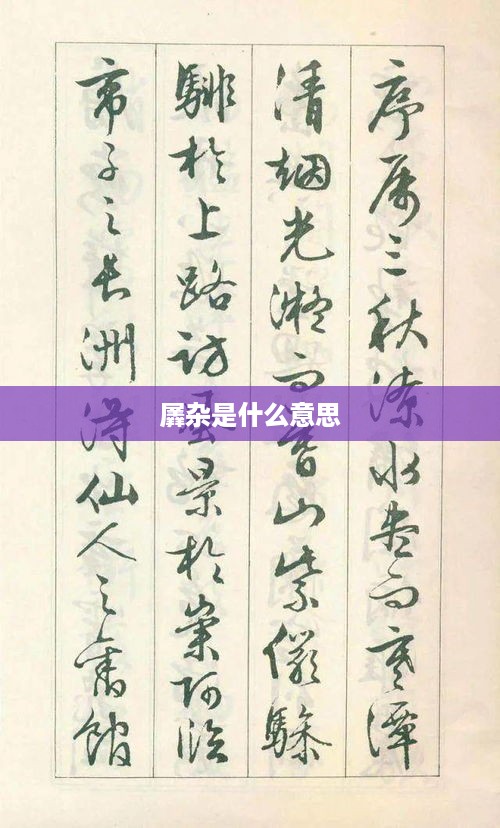 序属三秋潦水盡而寒潭
清烟光凝而暮山紫儼驂
騑於上路訪風景於崇阿臨
帝子之長洲得仙人之舊館
羼杂是什么意思